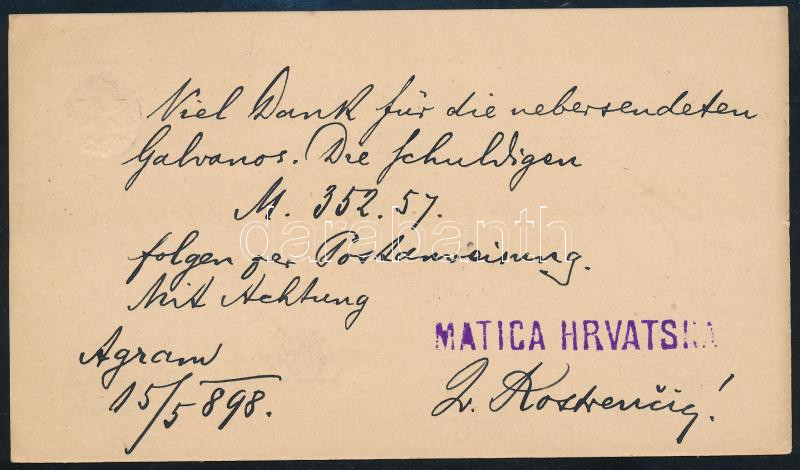 Viel Dank für die uebersendeten
Galvanos. Die schuldigen
M. 352.57.
folgen per Postanweisung.
Mit Achtung
darabanth
MATICA HRVATSKA
Agram
15/5 898.
Iv. Kostrenčić!